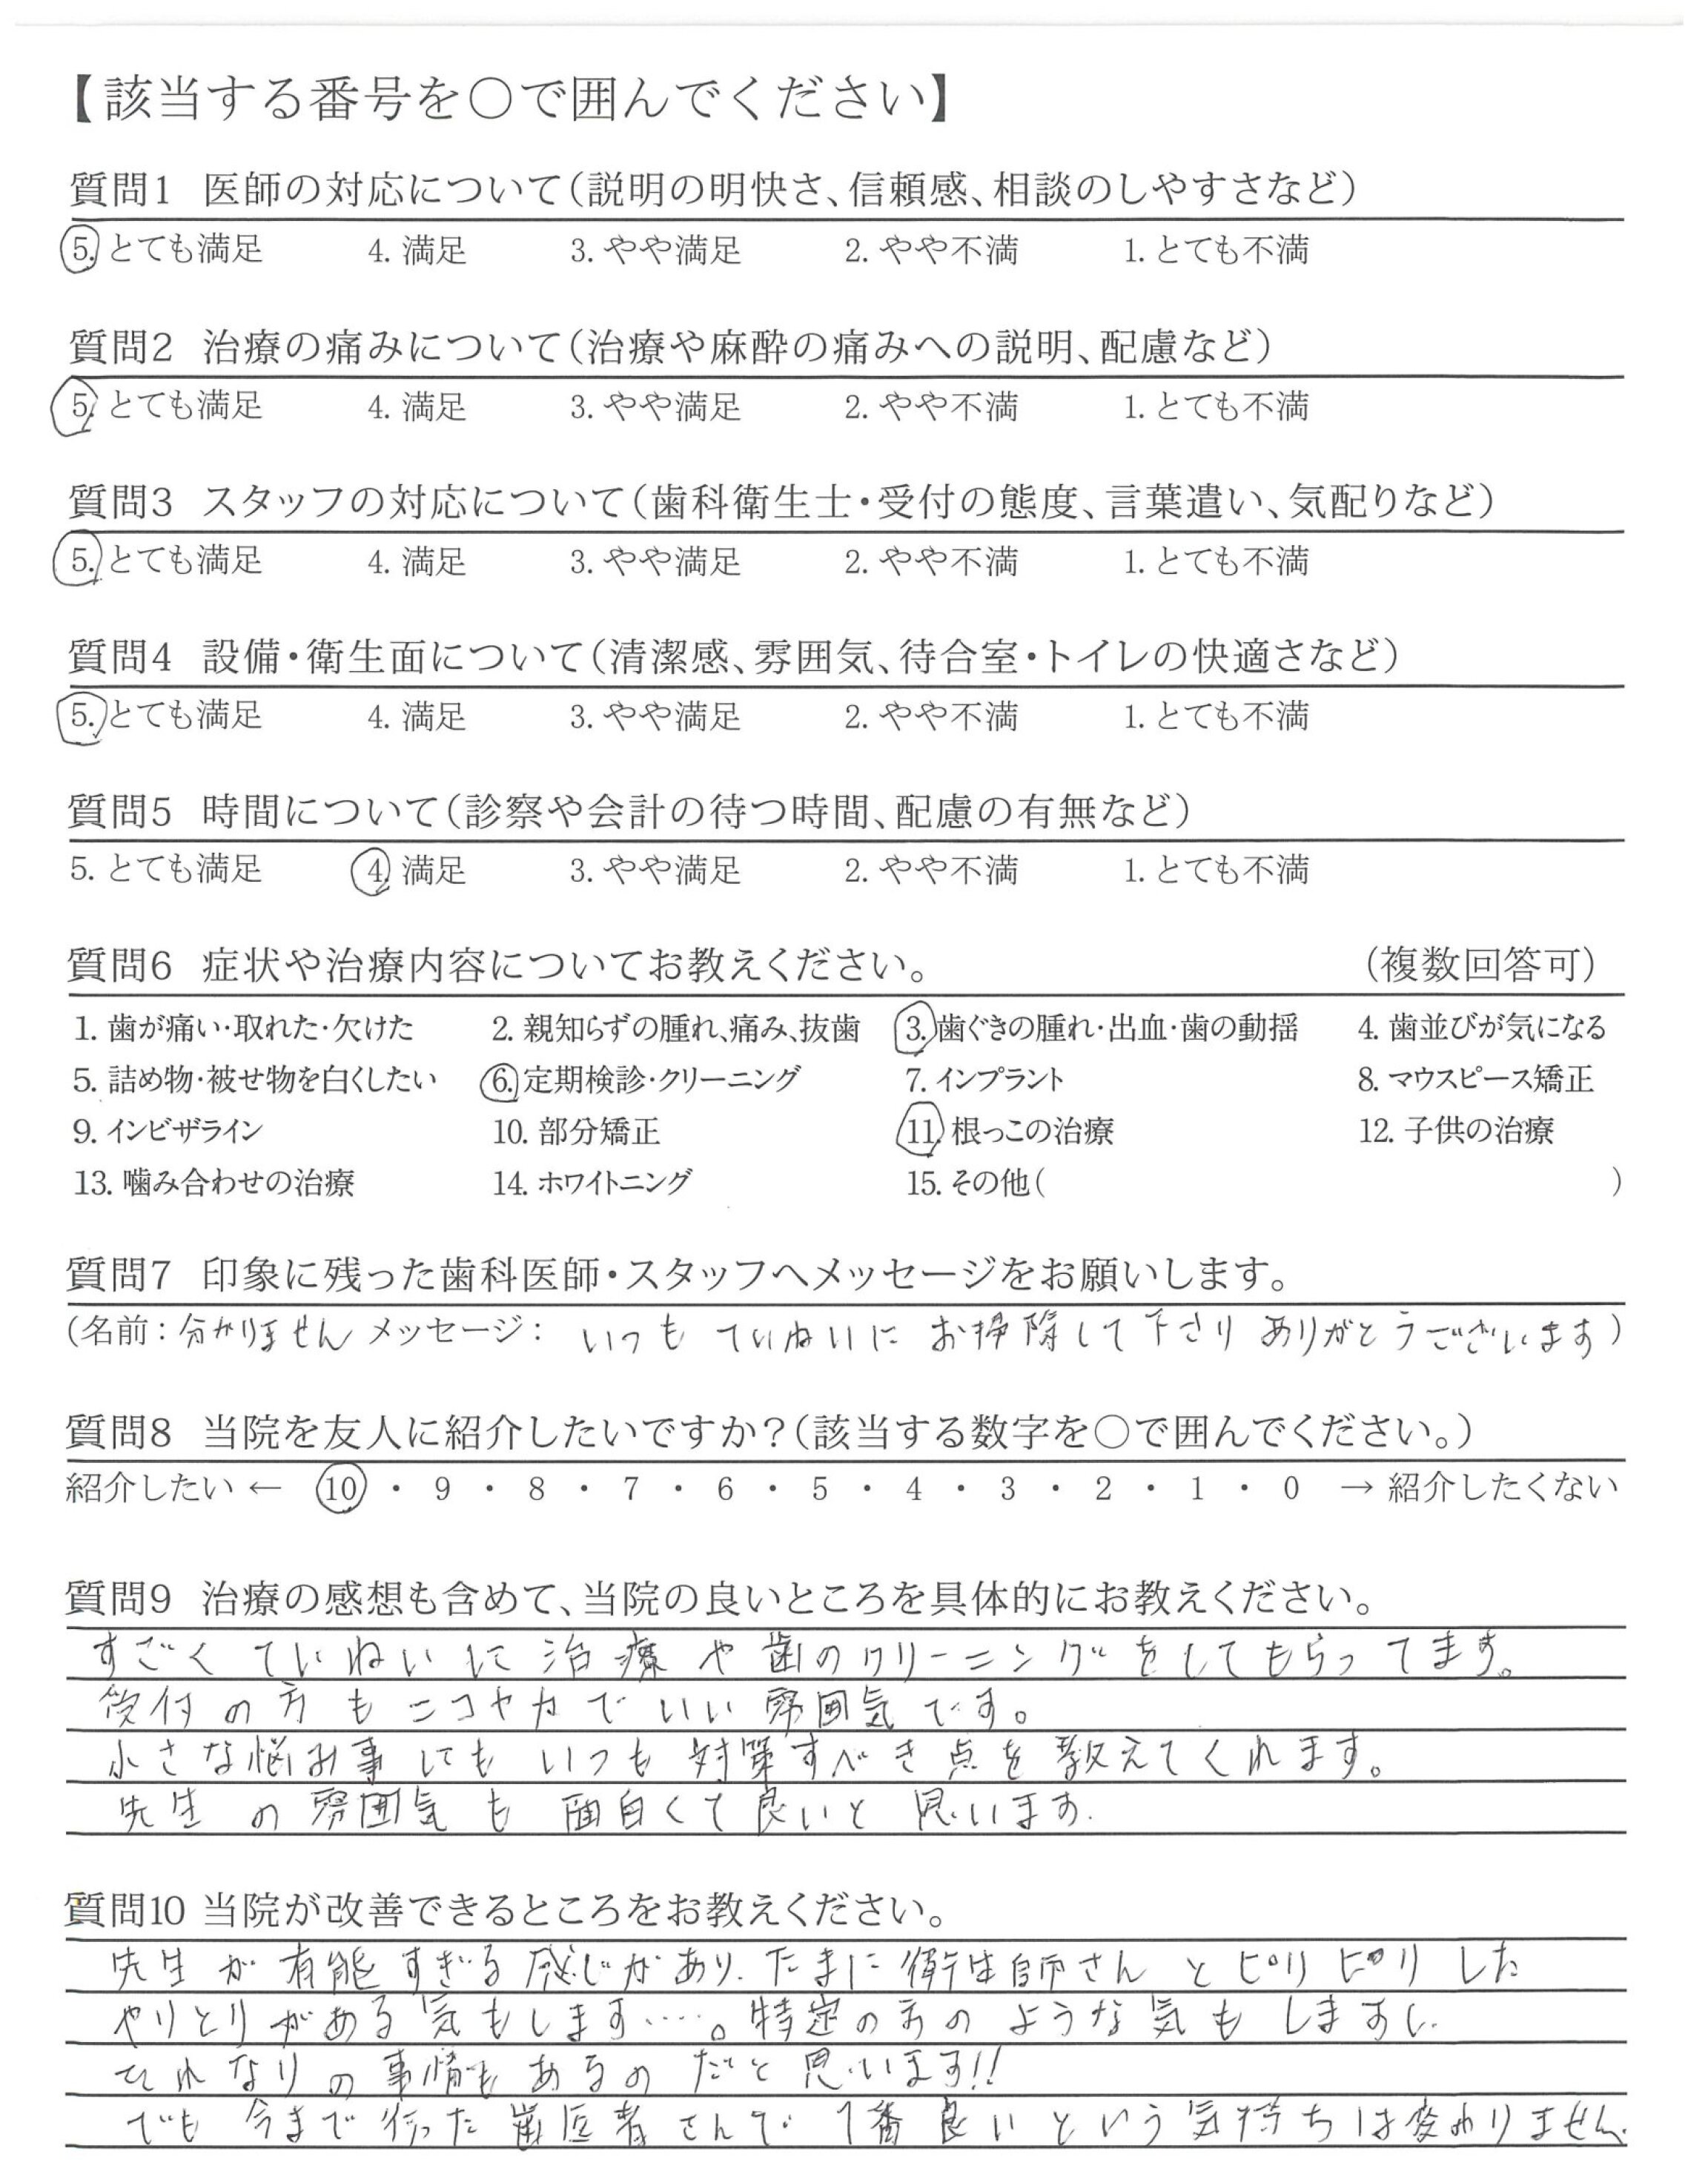 【該当する番号を〇で囲んでください】
質問1 医師の対応について(説明の明快さ、信頼感、相談のしやすさなど)
5. とても満足 4. 満足 3. やや満足 2. やや不満 1. とても不満
質問2 治療の痛みについて(治療や麻酔の痛みへの説明、配慮など)
5. とても満足 4. 満足 3. やや満足 2. やや不満 1. とても不満
質問3 スタッフの対応について(歯科衛生士・受付の態度、言葉遣い、気配りなど)
5. とても満足 4. 満足 3. やや満足 2. やや不満 1. とても不満
質問4 設備・衛生面について(清潔感、雰囲気、待合室・トイレの快適さなど)
5. とても満足 4. 満足 3. やや満足 2. やや不満 1. とても不満
質問5 時間について(診察や会計の待つ時間、配慮の有無など)
5. とても満足 4. 満足 3. やや満足 2. やや不満 1. とても不満
質問6 症状や治療内容についてお教えください。 (複数回答可)
1. 歯が痛い・取れた・欠けた 2. 親知らずの腫れ、痛み、抜歯 3. 歯ぐきの腫れ・出血・歯の動揺 4. 歯並びが気になる
5. 詰め物・被せ物を白くしたい 6. 定期検診・クリーニング 7. インプラント 8. マウスピース矯正
9. インビザライン 10. 部分矯正 11. 根っこの治療 12. 子供の治療
13. 噛み合わせの治療 14. ホワイトニング 15. その他( )
質問7 印象に残った歯科医師・スタッフへメッセージをお願いします。
(名前：分かりません メッセージ： いつも ていねいに お掃除して下さり ありがとうございます)
質問8 当院を友人に紹介したいですか？(該当する数字を〇で囲んでください。)
紹介したい ← 10 ・ 9 ・ 8 ・ 7 ・ 6 ・ 5 ・ 4 ・ 3 ・ 2 ・ 1 ・ 0 → 紹介したくない
質問9 治療の感想も含めて、当院の良いところを具体的にお教えください。
すごく ていねいに 治療や歯のクリーニングをしてもらってます。
受付の方もニコヤカでいい雰囲気です。
小さな悩み事にもいつも対策すべき点を教えてくれます。
先生の雰囲気も面白くて良いと思います.
質問10 当院が改善できるところをお教えください。
先生が有能すぎる感じがあり. たまに衛生師さんとピリピリした
やりとりがある気もします……。特定の方のような気もしますし.
それなりの事情もあるのだと思います!!
でも 今まで行った歯医者さんで 1番良いという気持ちは変わりません.